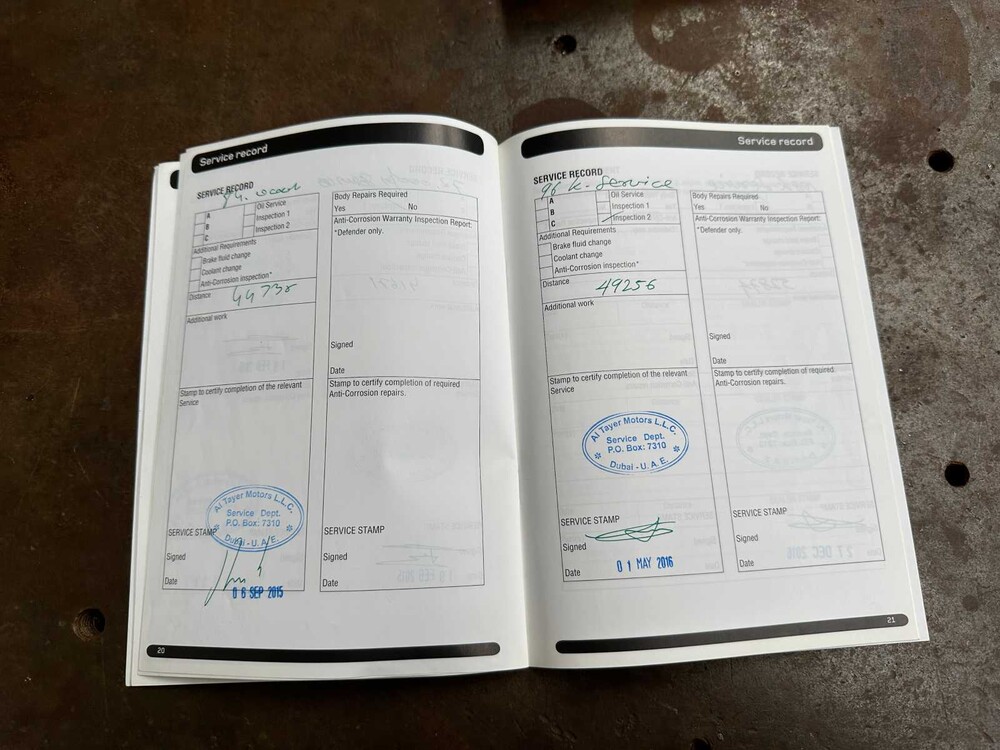 Service record
SERVICE RECORD
A
B
C
Oil Service
Inspection 1
Inspection 2
Additional Requirements
Brake fluid change
Coolant change
Anti-Corrosion inspection*
Distance
44738
Additional work
Stamp to certify completion of the relevant
Service
Al Tayer Motors L.L.C.
Service Dept.
P.O. Box: 7310
Dubai - U.A.E.
SERVICE STAMP
Signed
Date
06 SEP 2015
Body Repairs Required
Yes No
Anti-Corrosion Warranty Inspection Report:
*Defender only.
Signed
Date
Stamp to certify completion of required
Anti-Corrosion repairs.
SERVICE STAMP
Signed
Date
20
Service record
SERVICE RECORD
96 K-Service
A
B
C
Oil Service
Inspection 1
Inspection 2
Additional Requirements
Brake fluid change
Coolant change
Anti-Corrosion inspection*
Distance
49256
Additional work
Stamp to certify completion of the relevant
Service
Al Tayer Motors L.L.C.
Service Dept.
P.O. Box: 7310
Dubai - U.A.E.
SERVICE STAMP
Signed
Date
01 MAY 2016
Body Repairs Required
Yes No
Anti-Corrosion Warranty Inspection Report:
*Defender only.
Signed
Date
Stamp to certify completion of required
Anti-Corrosion repairs.
SERVICE STAMP
Signed
Date
21